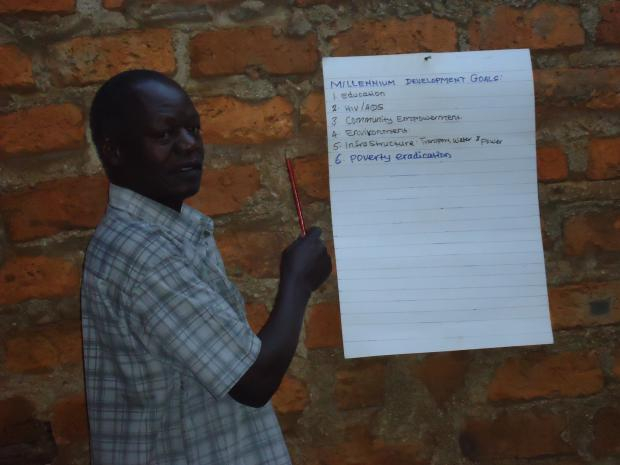 MILLENNIUM DEVELOPMENT GOALS:
1. Education
2. HIV/AIDS
3 Community Empowerment
4. Environment
5. Infrastructure: Transport, Water & Power
6. Poverty eradication